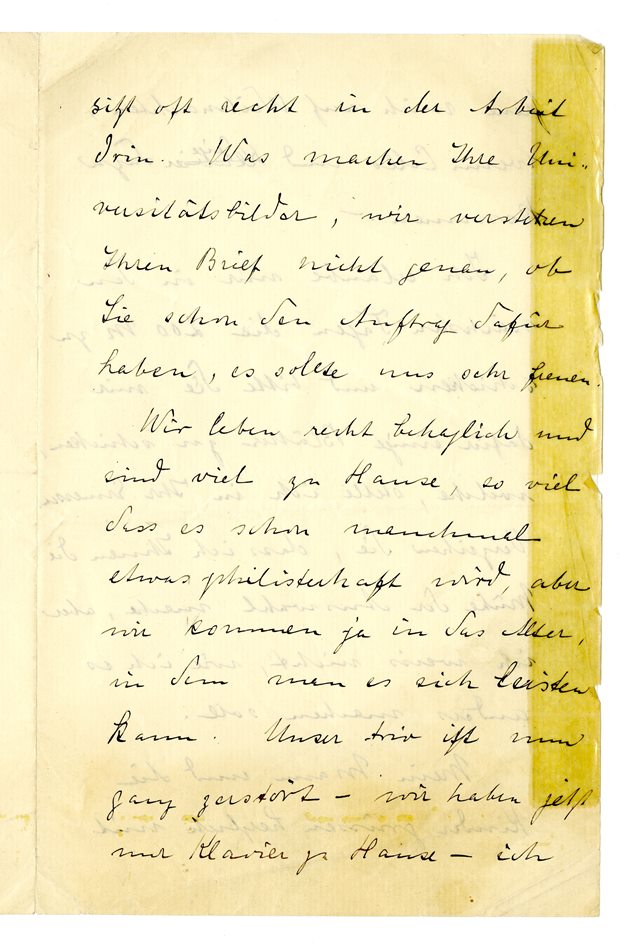 sitzt oft recht in der Arbeit
drin. Was machen Ihre Uni-
versitätsbilder, wir verstehen
Ihren Brief nicht genau, ob
Sie schon den Auftrag dafür
haben, es sollte uns sehr freuen.
Wir leben recht behaglich und
sind viel zu Hause, so viel
dass es schon manchmal
etwas philisterhaft wird, aber
wir kommen ja in das Alter,
in dem man es sich leisten
kann. Unser trio ist nun
ganz zerstört – wir haben jetzt
nur Klavier zu Hause – ich